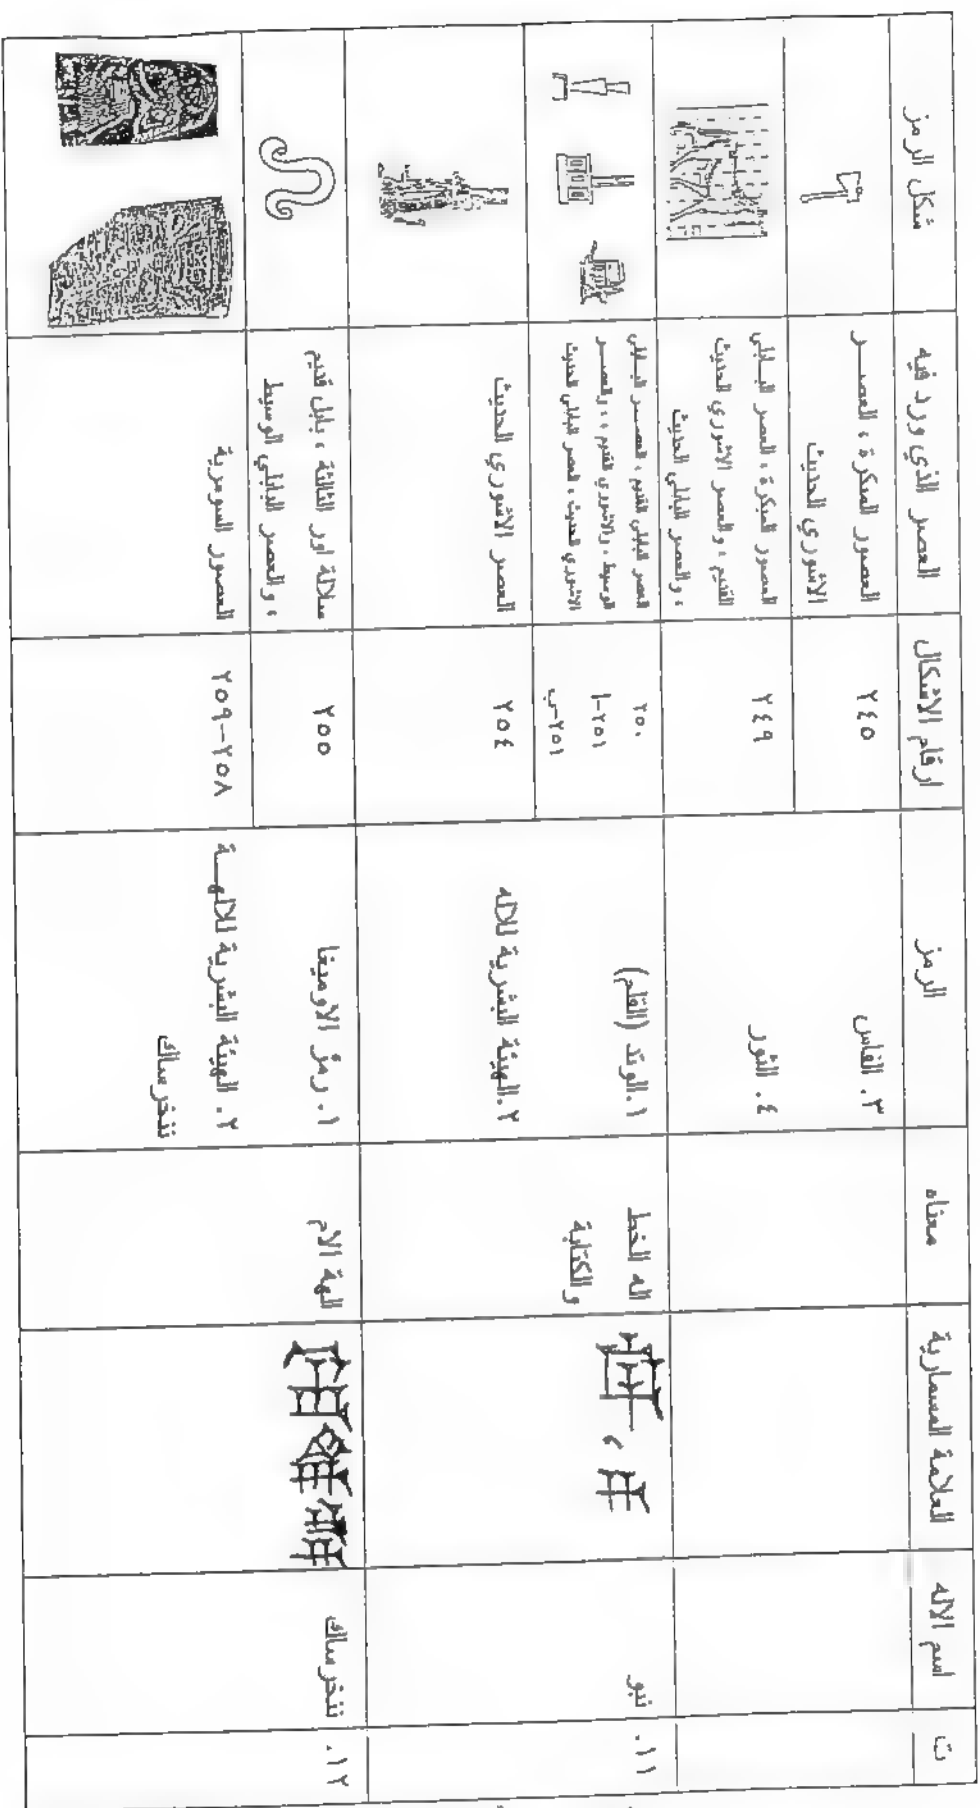 ت
اسم الاله
العلامة المسمارية
معناه
الرمز
ارقام الاشكال
العصر الذي ورد فيه
شكل الرمز
٣. الفاس
٢٤٥
العصور المبكرة ، العصـــر
الاشوري الحديث
٤. الثور
٢٤٩
العصور المبكرة ، العصر البـــابلي
القديم ، والعصر الاشوري الحديث
، والعصر البابلي الحديث
١١.
نبو
،
اله الخط
والكتابة
١.الوتد (القلم)
٢٥٠
٢٥١-أ
٢٥١-ب
العصر البابلي القديم ، العصـــر البـــابلي
الوسيط ، والاشوري القديم ، والعصـــر
الاشوري الحديث ، العصر البابلي الحديث
٢.الهيئة البشرية للاله
٢٥٤
العصر الاشوري الحديث
١٢.
ننخرساك
الهة الام
١. رمز الاوميغا
٢٥٥
سلالة اور الثالثة ، بابل قديم
، والعصر البابلي الوسيط
٢. الهيئة البشرية للالهـــة
ننخرساك
٢٥٨-٢٥٩
العصور السومرية